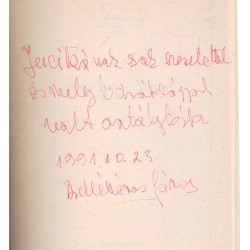 Jucikának sok szeretettel
és meleg barátsággal
volt osztálytársa
1991. 10. 23.
János